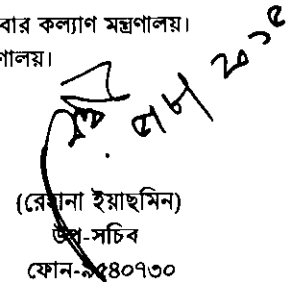 বার কল্যাণ মন্ত্রণালয়।
ণালয়।
(রেহানা ইয়াছমিন)
উপ-সচিব
ফোন-৯৫৪০৭৩০